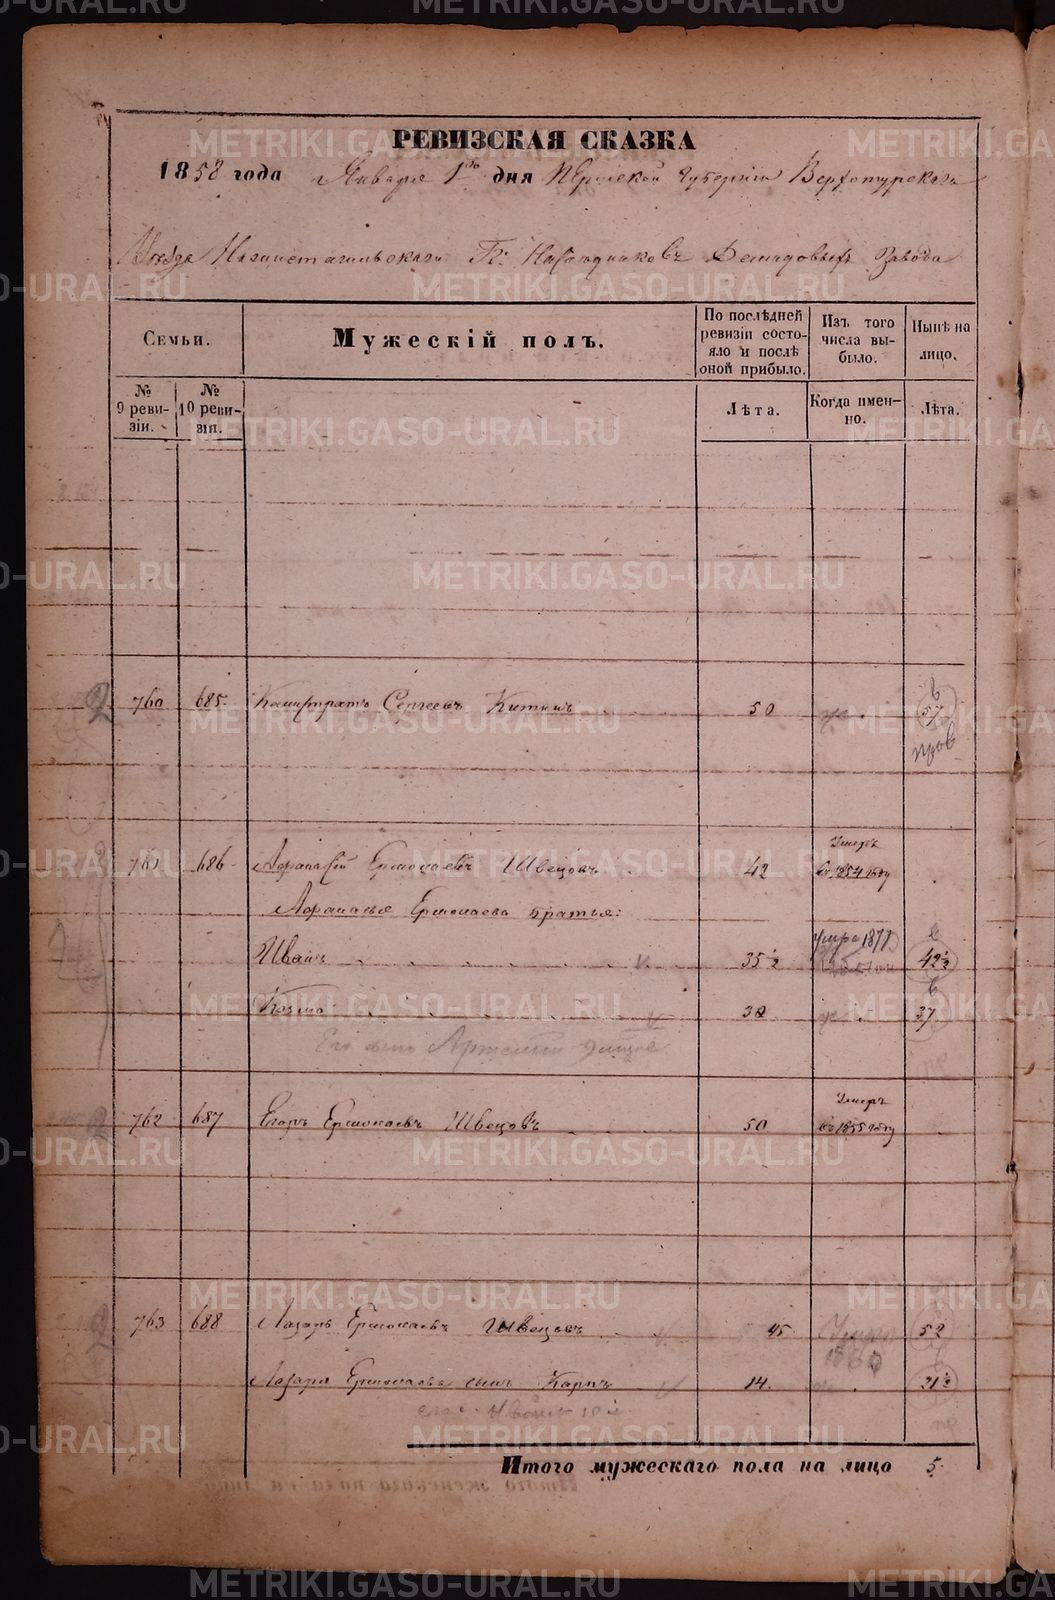 РЕВИЗСКАЯ СКАЗКА
1858 года Января 1го дня Пермской губернии Верхотурскаго
Уезда Нижнетагильскаго Гг. Наследниковъ Демидовыхъ Завода
Семьи.
Мужескій полъ.
По послѣдней ревизіи состояло и послѣ оной прибыло.
Изъ того числа выбыло.
Нынѣ на лицо.
№ 9 ревизіи.
№ 10 ревизіи.
Лѣта.
Когда именно.
Лѣта.
760 685 Сергеевъ 50 57
761 686 Афанасій Ермолаевъ Швецовъ 42 Умеръ въ 1854 году
Афанасья Ермолаева братья:
Иванъ 35½ 42½
Козма 30 37
Его сынъ
762 687 Егоръ Ермолаевъ Швецовъ 50 Умеръ въ 1855 году
763 688 Лазарь Ермолаевъ Швецовъ 45 52
Лазаря Ермолаева сынъ Карпъ 14 21½
Итого мужескаго пола на лицо 5
METRIKI.GASO-URAL.RU